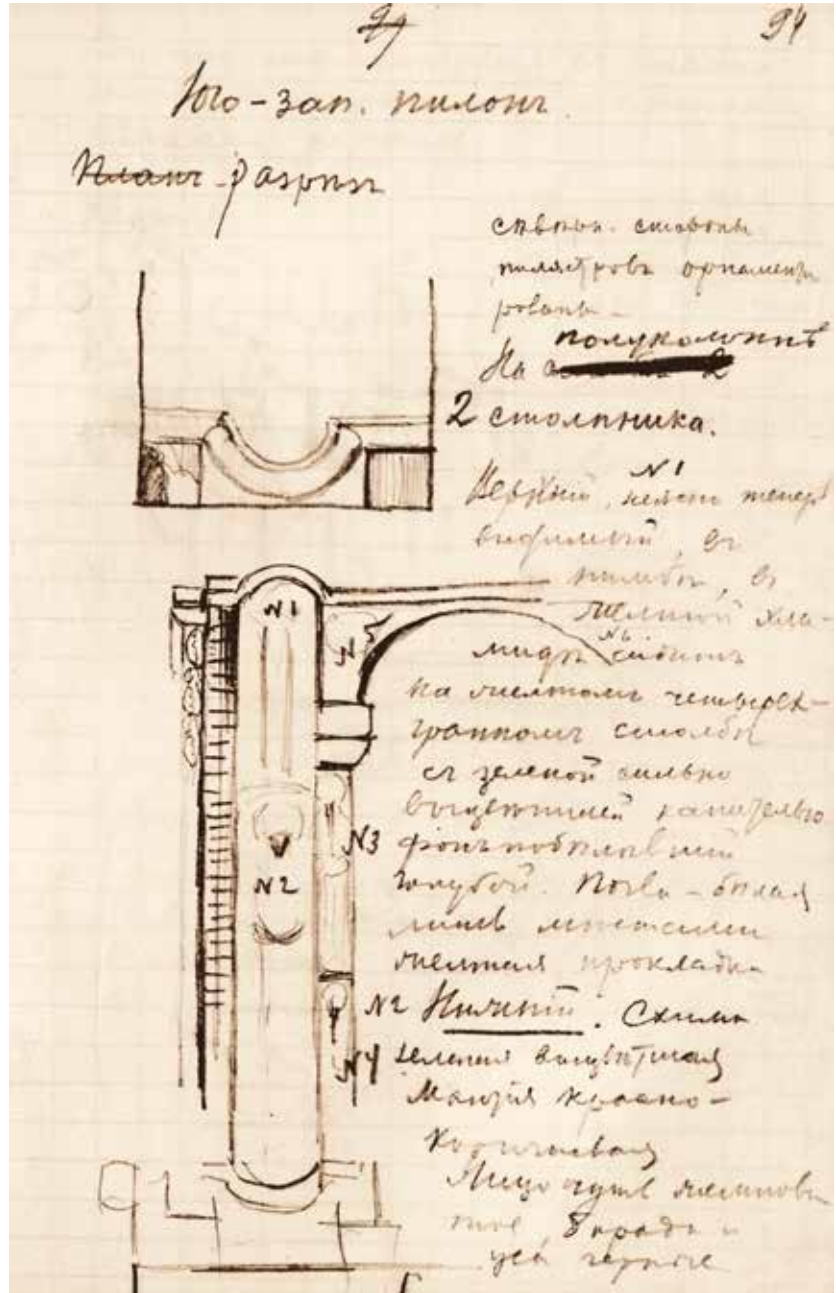 94
Юго-зап. пилонъ.
Планъ-разрѣзъ
сѣверн. стороны
пилястровъ орнаменти
рованы
На полуколоннѣ
2 столпника.
Верхній, №1 неясно теперь
видимый, въ
нимбѣ, въ
желтой хла-
мидѣ
на желтомъ четырех-
гранномъ столбѣ
съ зеленой сильно
выцвѣтшей капителью
фонъ побѣлѣвшій
голубой. Почва - бѣлая
лишь мѣстами
желтая прокладка
№2 Нижній. Схима
зеленая выцвѣтшая
Мантія красно-
коричневая
Лицо желтова
тое, борода и
усы черные
№1
№5
№3
№2
№4